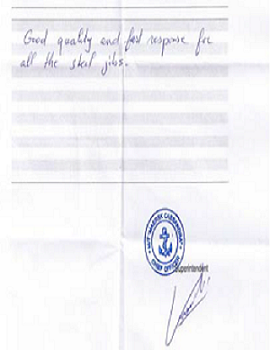 Good quality and fast response for
all the steel jobs.
CHIEF OFFICER
Superintendent